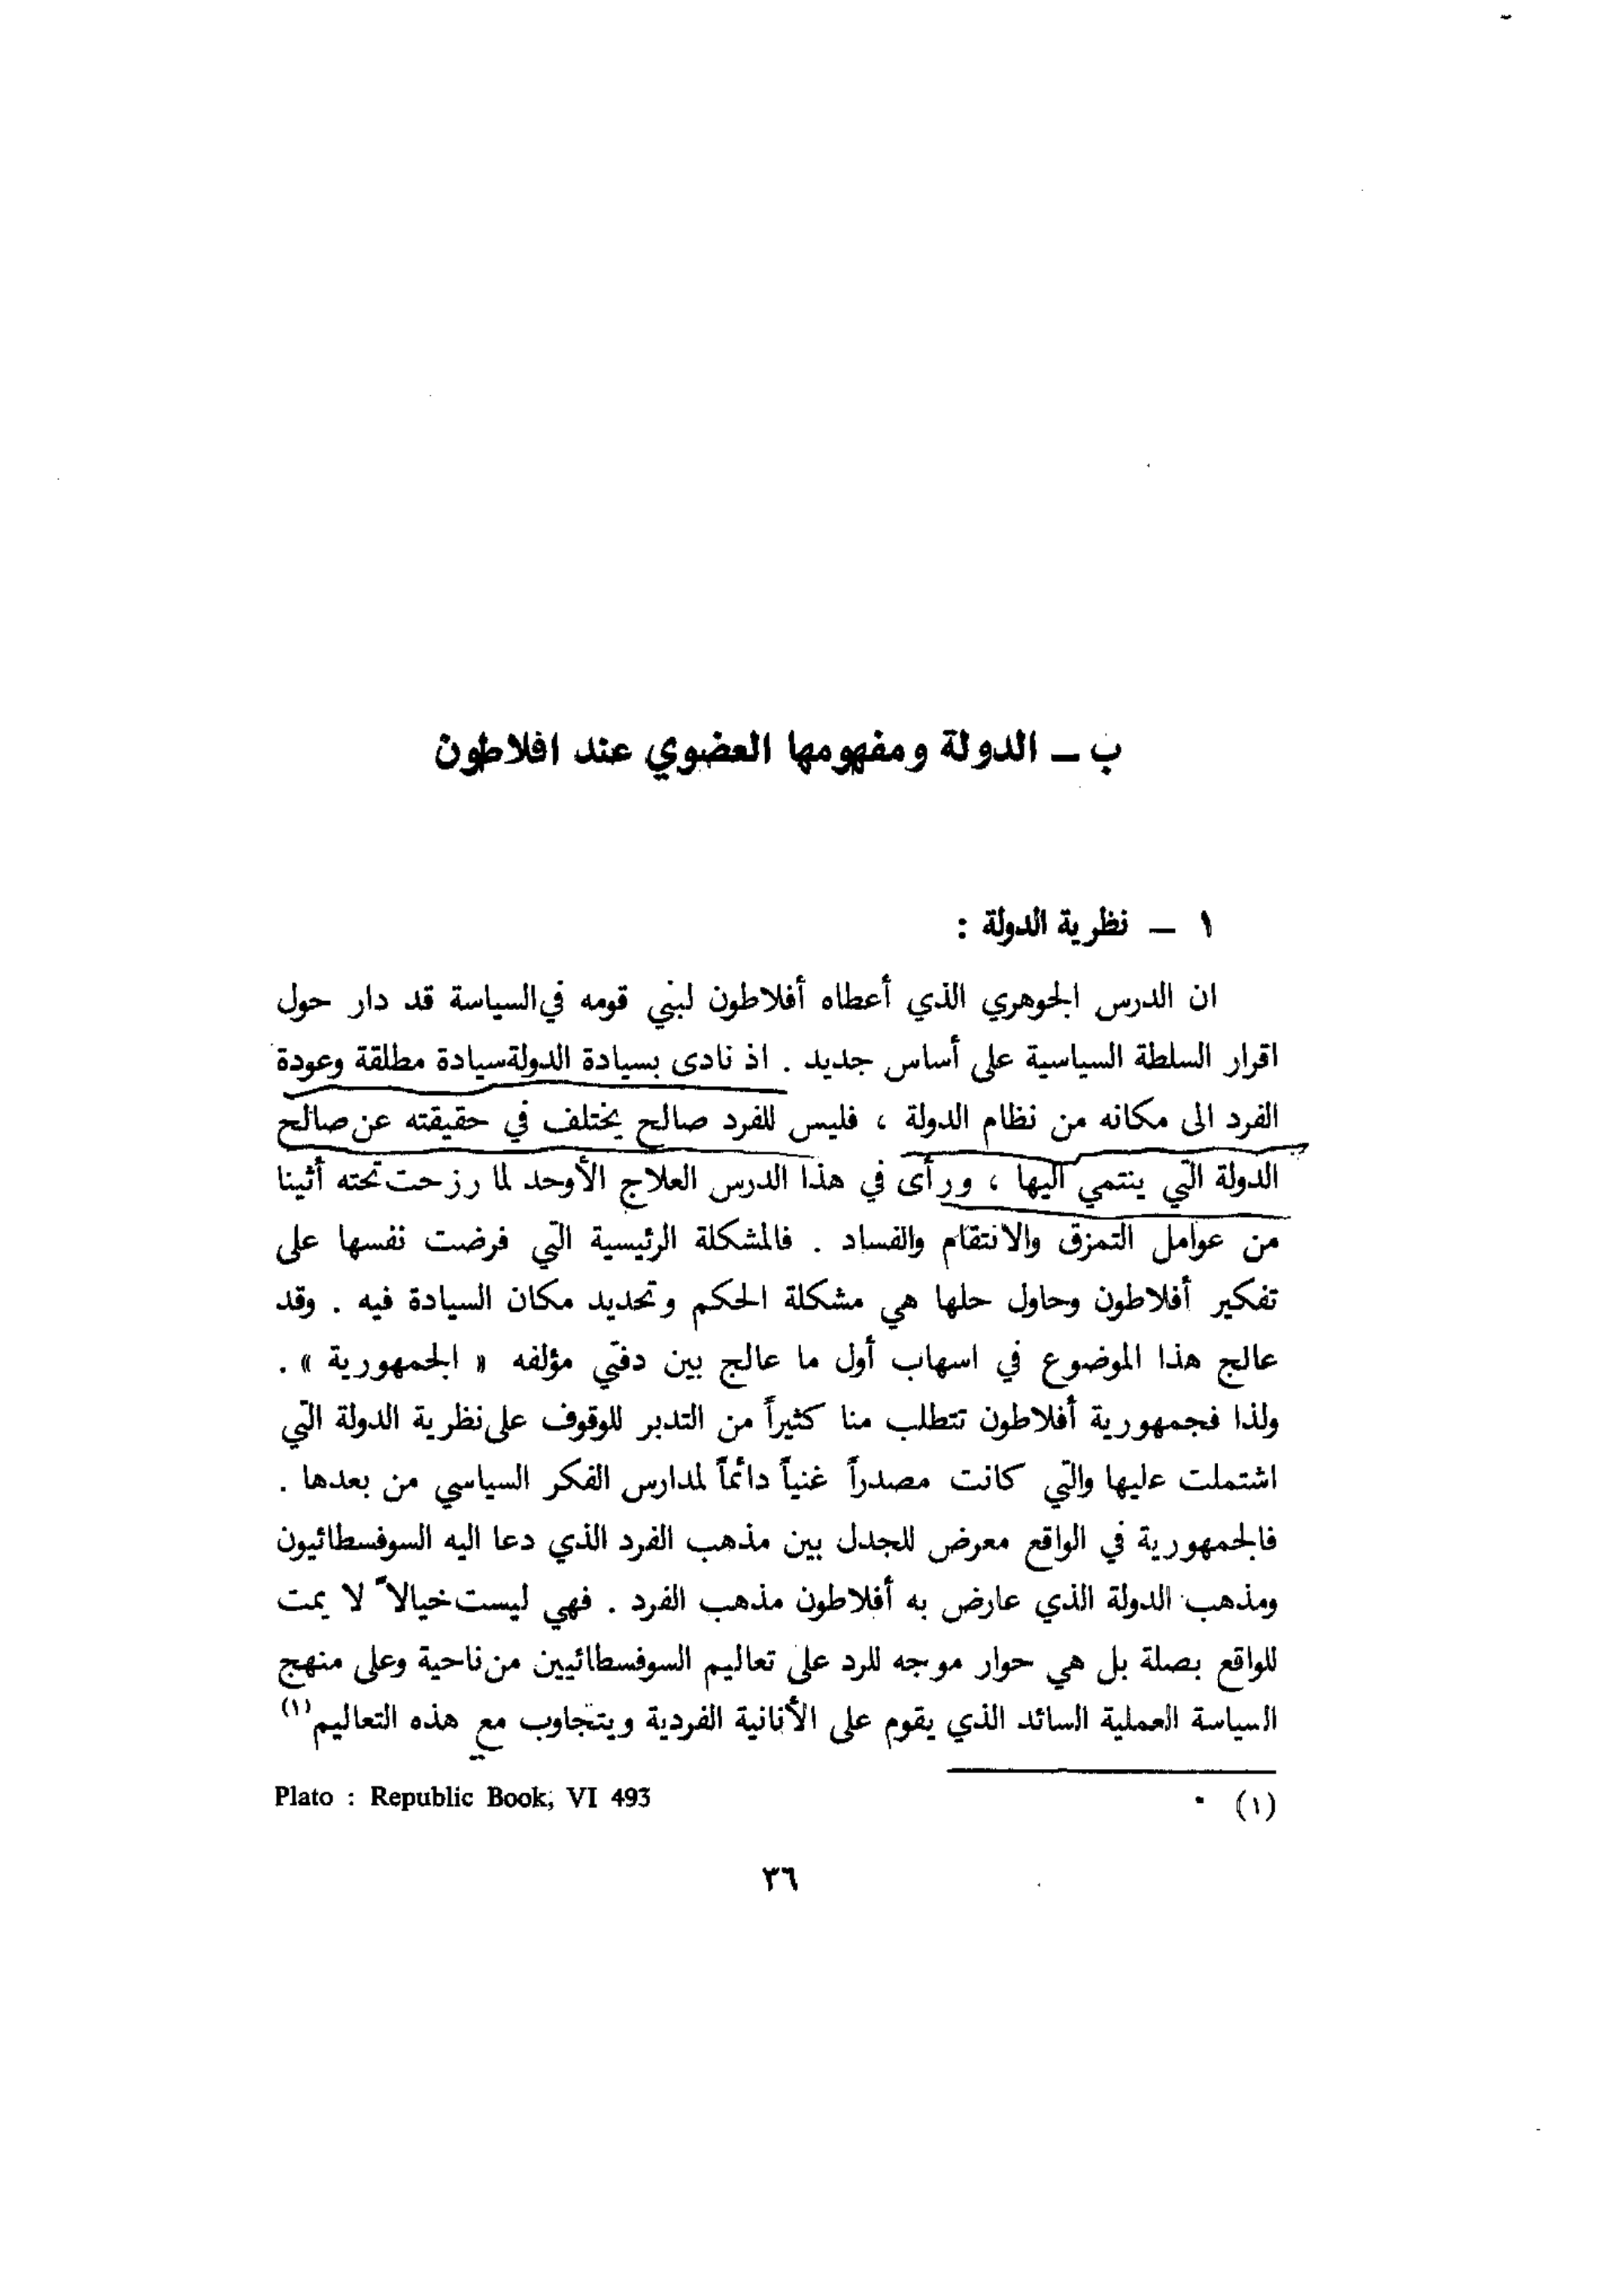 ب – الدولة ومفهومها العضوي عند افلاطون
١ – نظرية الدولة :
ان الدرس الجوهري الذي أعطاه أفلاطون لبني قومه في السياسة قد دار حول
اقرار السلطة السياسية على أساس جديد . اذ نادى بسيادة الدولة سيادة مطلقة وعودة
الفرد الى مكانه من نظام الدولة ، فليس للفرد صالح يختلف في حقيقته عن صالح
الدولة التي ينتمي اليها ، ورأى في هذا الدرس العلاج الأوحد لما رزحت تحته أثينا
من عوامل التمزق والانتقام والفساد . فالمشكلة الرئيسية التي فرضت نفسها على
تفكير أفلاطون وحاول حلها هي مشكلة الحكم وتحديد مكان السيادة فيه . وقد
عالج هذا الموضوع في اسهاب أول ما عالج بين دفتي مؤلفه « الجمهورية » .
ولذا فجمهورية أفلاطون تتطلب منا كثيراً من التدبر للوقوف على نظرية الدولة التي
اشتملت عليها والتي كانت مصدراً غنياً دائماً لمدارس الفكر السياسي من بعدها .
فالجمهورية في الواقع معرض للجدل بين مذهب الفرد الذي دعا اليه السوفسطائيون
ومذهب الدولة الذي عارض به أفلاطون مذهب الفرد . فهي ليست خيالاً لا يمت
للواقع بصلة بل هي حوار موجه للرد على تعاليم السوفسطائيين من ناحية وعلى منهج
السياسة العملية السائد الذي يقوم على الأنانية الفردية ويتجاوب مع هذه التعاليم(١)
(١) . Plato : Republic Book, VI 493
٣٦